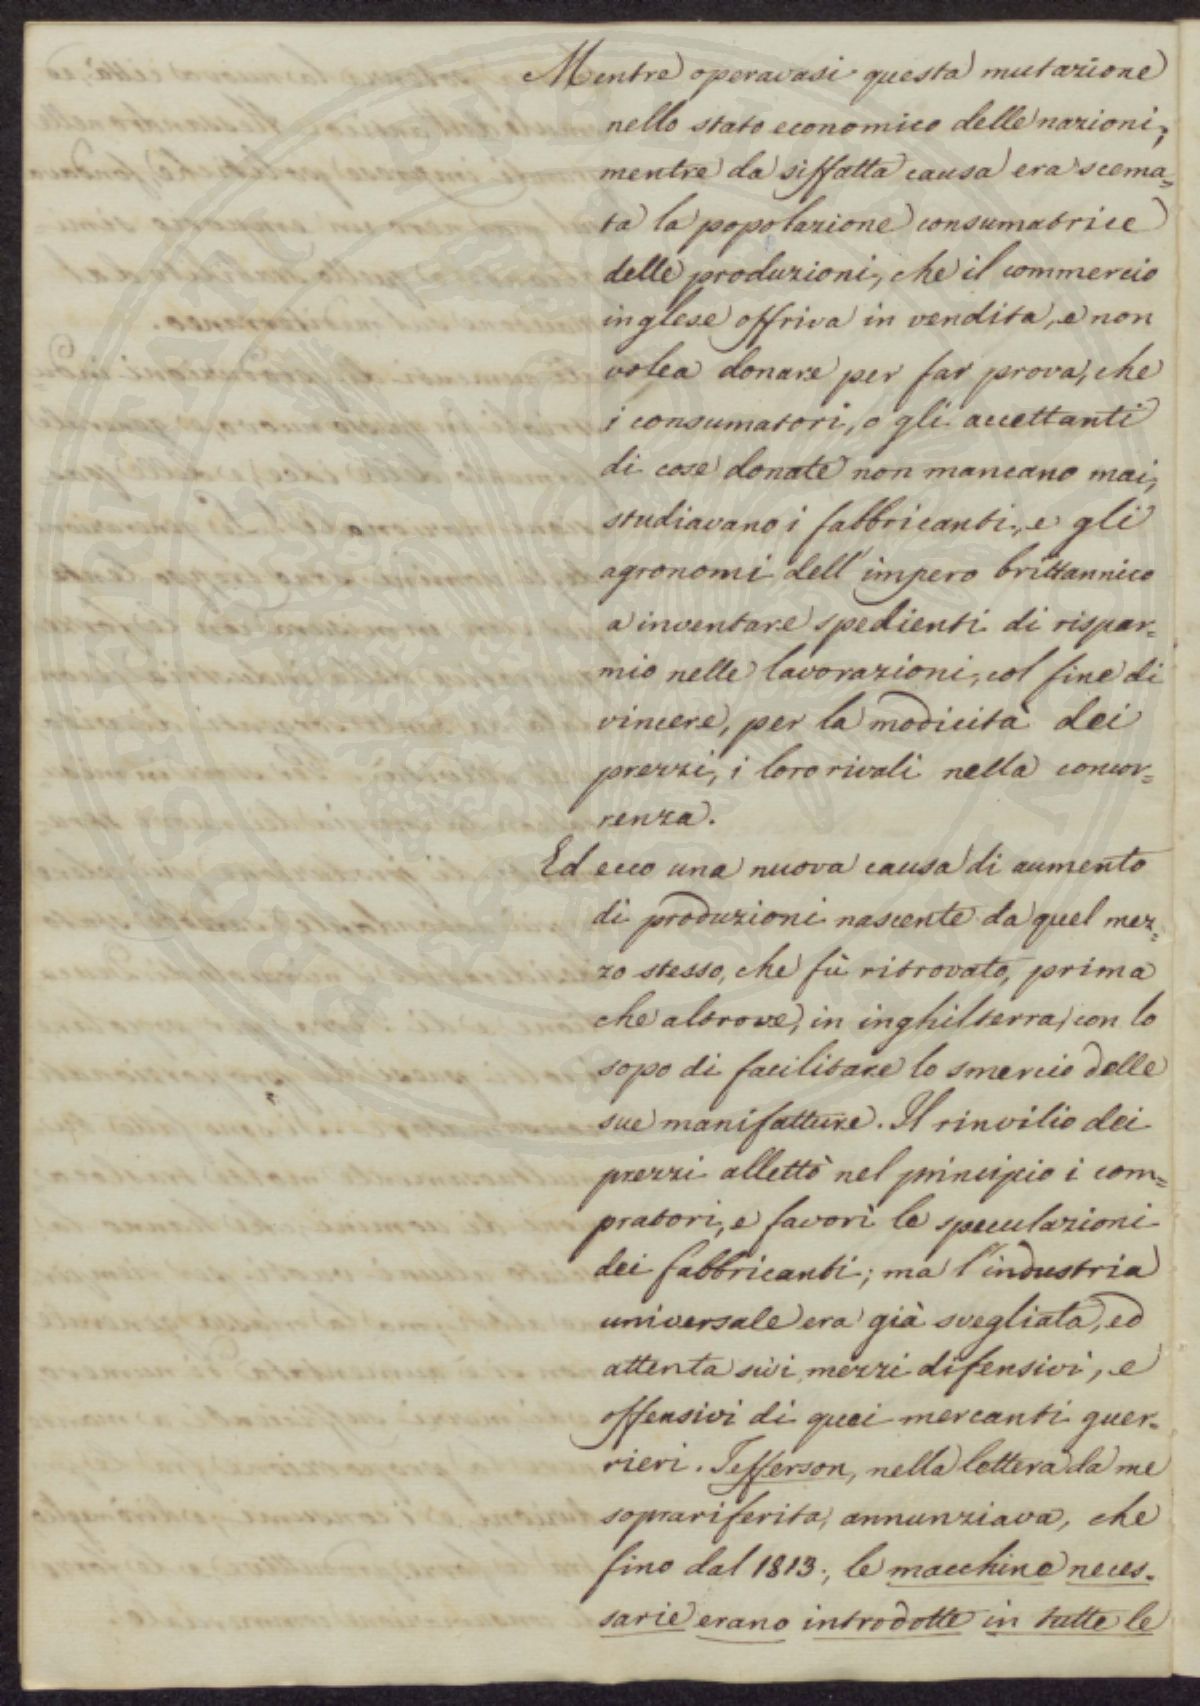 Mentre operavasi questa mutazione
nello stato economico delle nazioni;
mentre da siffatta causa era scema=
ta la popolazione consumatrice
delle produzioni, che il commercio
inglese offriva in vendita, e non
volea donare per far prova, che
i consumatori, o gli accettanti
di cose donate non mancano mai;
studiavano i fabbricanti, e gli
agronomi dell'impero brittannico
a inventare spedienti di rispar=
mio nelle lavorazioni, col fine di
vincere, per la modicità dei
prezzi, i loro rivali nella concor=
renza.
Ed ecco una nuova causa di aumento
di produzioni nascente da quel mez=
zo stesso, che fù ritrovato, prima
che altrove, in inghilterra, con lo
sopo di facilitare lo smercio delle
sue manifatture. Il rinvilio dei
prezzi allettò nel principio i com=
pratori, e favorì le speculazioni
dei fabbricanti; ma l'industria
universale era già svegliata, ed
attenta sui mezzi difensivi, e
offensivi di quei mercanti guer=
rieri. Jefferson, nella lettera da me
soprariferita, annunziava, che
fino dal 1813., le macchine neces=
sarie erano introdotte in tutte le